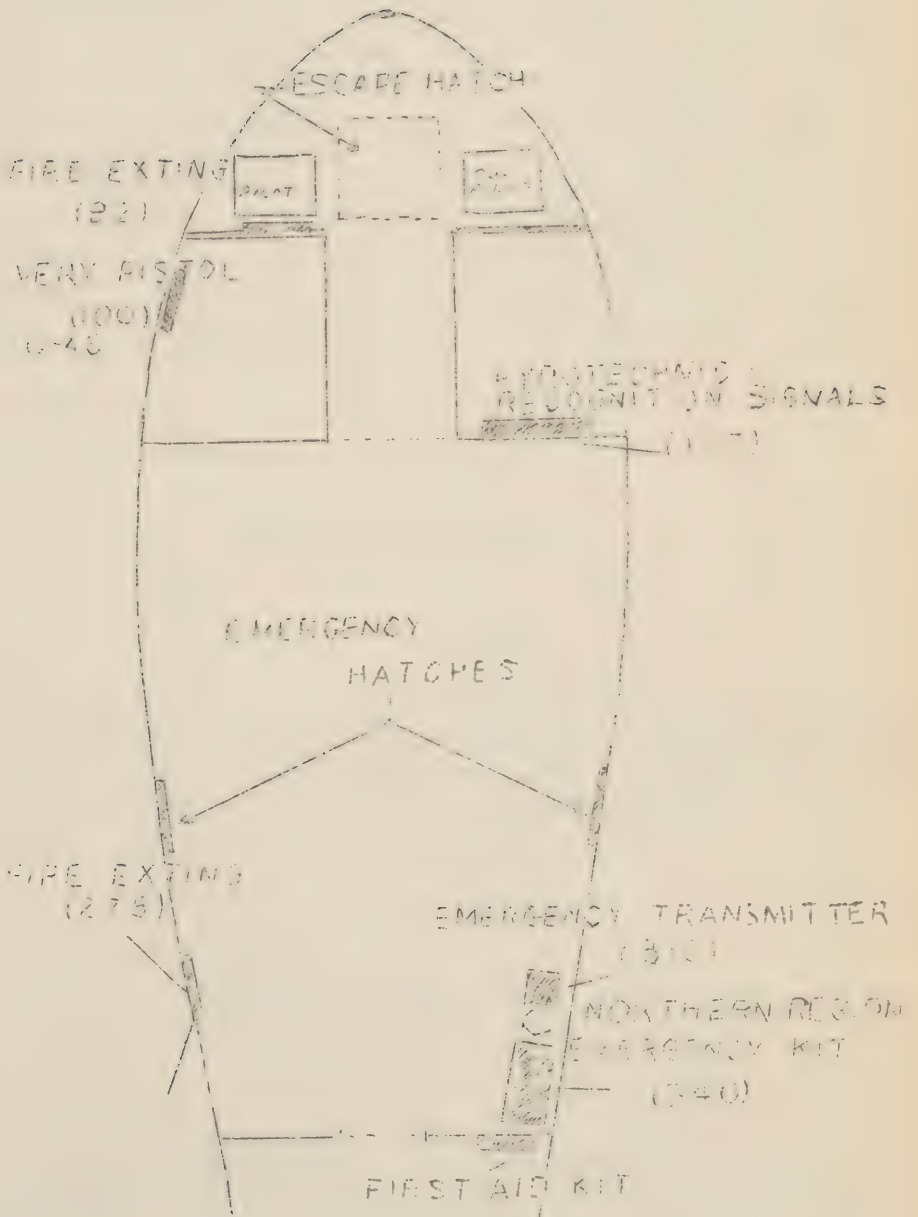 ESCAPE HATCH
FIRE EXTING
(92)
PILOT
VERY PISTOL
(100)
RECOGNITION SIGNALS
EMERGENCY
HATCHES
FIRE EXTING
(275)
EMERGENCY TRANSMITTER
(310)
NORTHERN REGION
EMERGENCY KIT
(340)
FIRST AID KIT